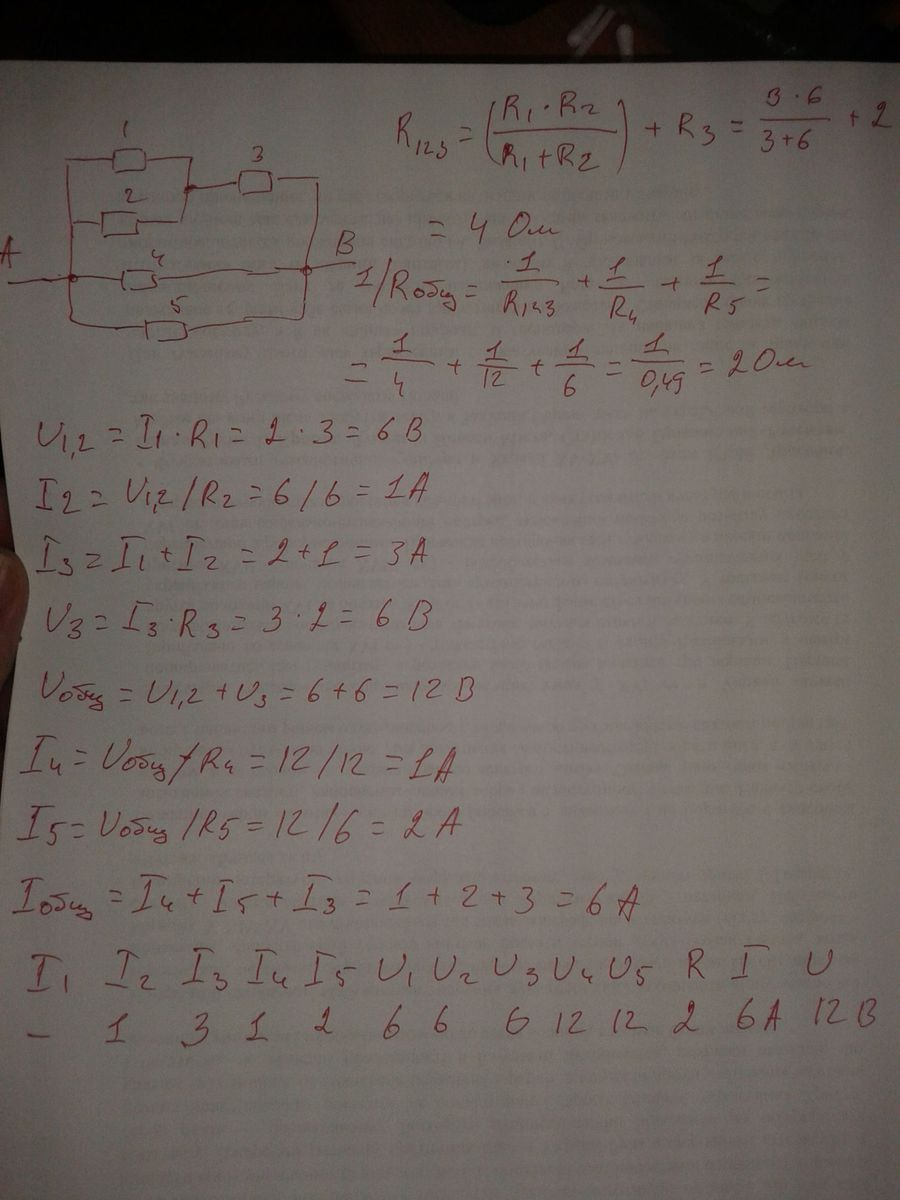 1
2
3
4
5
A
B
R₁₂₃ = (R₁ · R₂ / R₁ + R₂) + R₃ = 3 · 6 / 3 + 6 + 2
= 4 Ом
1/Rобщ = 1/R₁₂₃ + 1/R₄ + 1/R₅ =
= 1/4 + 1/12 + 1/6 = 1/0,49 = 2 Ом
U₁,₂ = I₁ · R₁ = 2 · 3 = 6 В
I₂ = U₁,₂ / R₂ = 6 / 6 = 1 А
I₃ = I₁ + I₂ = 2 + 1 = 3 А
U₃ = I₃ · R₃ = 3 · 2 = 6 В
Uобщ = U₁,₂ + U₃ = 6 + 6 = 12 В
I₄ = Uобщ / R₄ = 12 / 12 = 1 А
I₅ = Uобщ / R₅ = 12 / 6 = 2 А
Iобщ = I₄ + I₅ + I₃ = 1 + 2 + 3 = 6 А
I₁ I₂ I₃ I₄ I₅ U₁ U₂ U₃ U₄ U₅ R I U
– 1 3 1 2 6 6 6 12 12 2 6А 12В